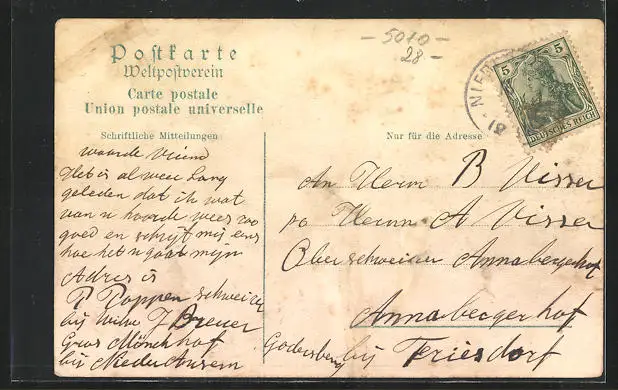 Postkarte
Weltpostverein
Carte postale
Union postale universelle
Schriftliche Mitteilungen
Nur für die Adresse
- 5010 -
28 -
5
5
DEUTSCHES REICH
NIED
waarde Vriend
Het is al weer Lang
geleden dat ik wat
van u hoorde wees zo
goed en schrijf mij eens
hoe het u gaat mijn
Adres is
P Poppen schweizer
bij Wilh J Breuer
Gros Mönchhof
bij Niederaussem
An Herrn B Visser
pa Herrn A Visser
Oberschweizer Annabergerhof
Annabergerhof
Godersberg bij Friesdorf